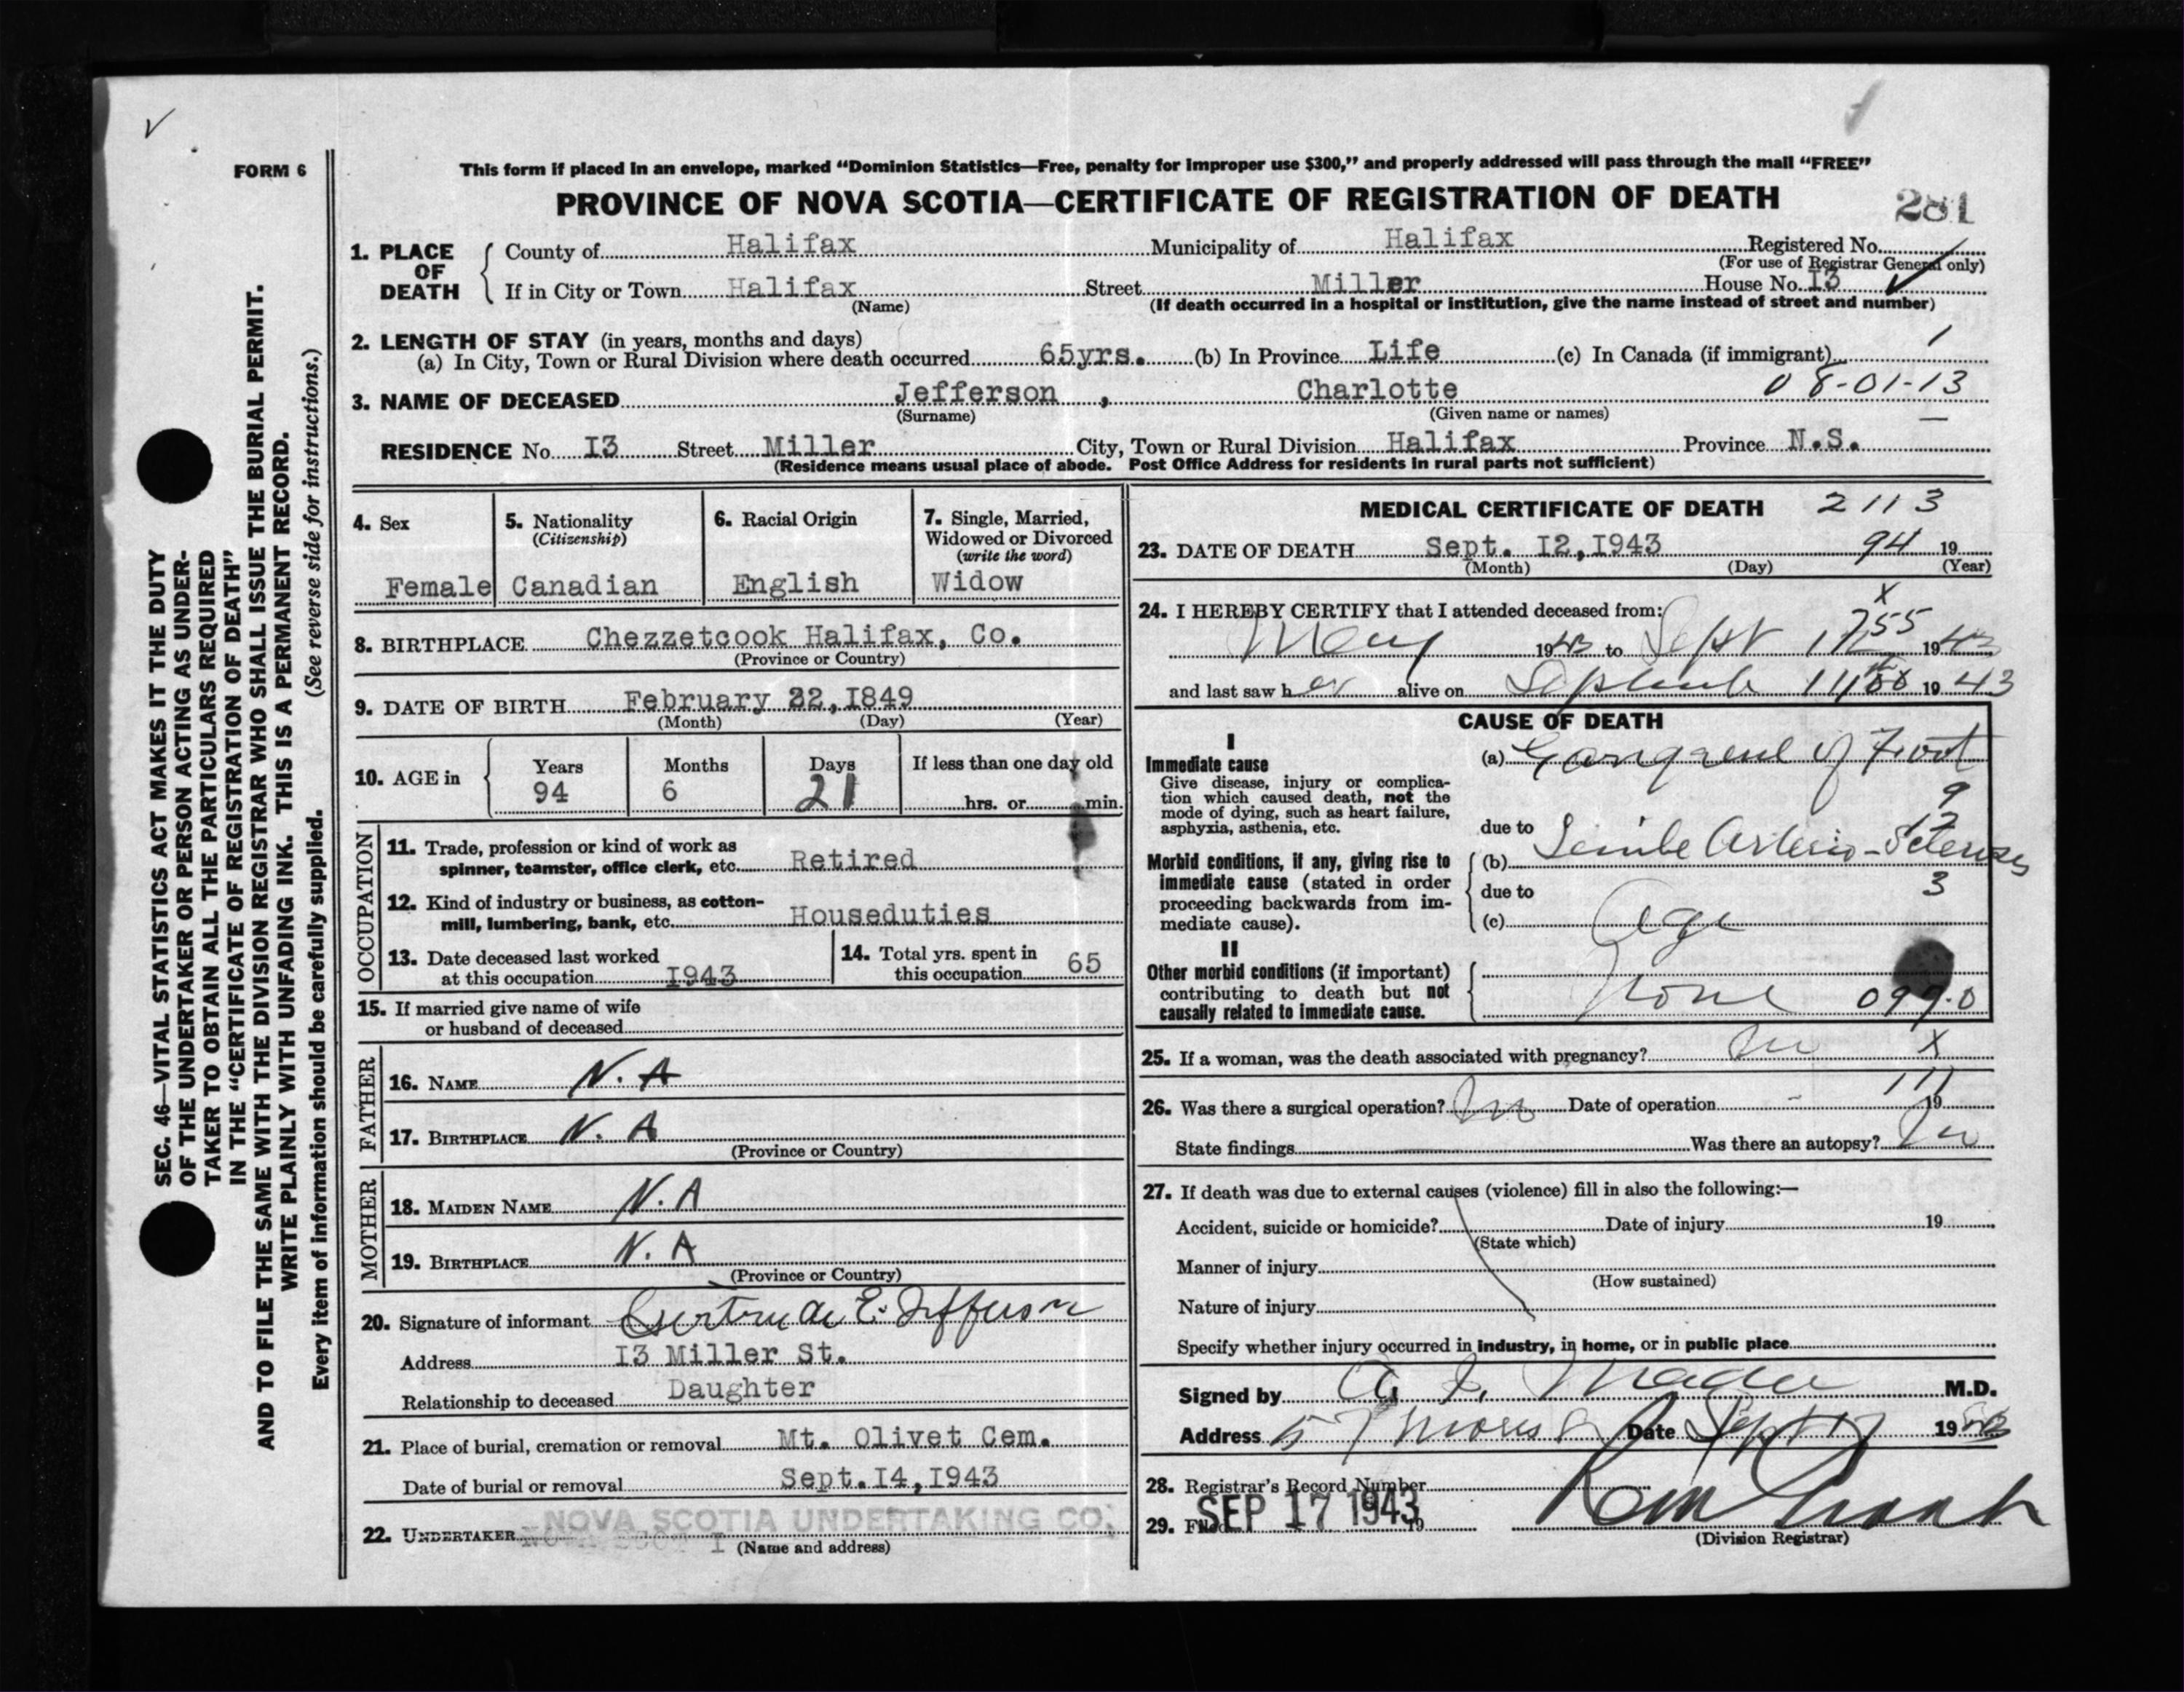 This form if placed in an envelope, marked “Dominion Statistics—Free, penalty for improper use $300,” and properly addressed will pass through the mail “FREE”
FORM 6
PROVINCE OF NOVA SCOTIA—CERTIFICATE OF REGISTRATION OF DEATH
281
1. PLACE OF DEATH
County of Halifax Municipality of Halifax Registered No.
(For use of Registrar General only)
If in City or Town Halifax Street Miller House No. I3
(Name) (If death occurred in a hospital or institution, give the name instead of street and number)
2. LENGTH OF STAY (in years, months and days)
(a) In City, Town or Rural Division where death occurred 65yrs. (b) In Province Life (c) In Canada (if immigrant) 1
3. NAME OF DECEASED Jefferson , Charlotte 08-01-13
(Surname) (Given name or names)
RESIDENCE No. I3 Street Miller City, Town or Rural Division Halifax Province N.S.
(Residence means usual place of abode. Post Office Address for residents in rural parts not sufficient)
4. Sex
Female
5. Nationality
(Citizenship)
Canadian
6. Racial Origin
English
7. Single, Married,
Widowed or Divorced
(write the word)
Widow
8. BIRTHPLACE Chezzetcook Halifax, Co.
(Province or Country)
9. DATE OF BIRTH February 22,I849
(Month) (Day) (Year)
10. AGE in
Years Months Days If less than one day old
94 6 21 hrs. or min.
OCCUPATION
11. Trade, profession or kind of work as
spinner, teamster, office clerk, etc. Retired
12. Kind of industry or business, as cotton-
mill, lumbering, bank, etc. Houseduties
13. Date deceased last worked
at this occupation I943
14. Total yrs. spent in
this occupation 65
15. If married give name of wife
or husband of deceased
FATHER
16. NAME N. A
17. BIRTHPLACE N. A
(Province or Country)
MOTHER
18. MAIDEN NAME N. A
19. BIRTHPLACE N. A
(Province or Country)
20. Signature of informant Gertrude E. Jefferson
Address I3 Miller St.
Relationship to deceased Daughter
21. Place of burial, cremation or removal Mt. Olivet Cem.
Date of burial or removal Sept.I4,I943
22. UNDERTAKER NOVA SCOTIA UNDERTAKING CO.
(Name and address)
MEDICAL CERTIFICATE OF DEATH 2113
23. DATE OF DEATH Sept. I2,I943 94 19
(Month) (Day) (Year)
24. I HEREBY CERTIFY that I attended deceased from: x
May 1943 to Sept 1943
and last saw her alive on September 11 1943
CAUSE OF DEATH
I
Immediate cause
Give disease, injury or complica-
tion which caused death, not the
mode of dying, such as heart failure,
asphyxia, asthenia, etc.
(a) Gangrene of Foot
9
12
due to
Morbid conditions, if any, giving rise to
immediate cause (stated in order
proceeding backwards from im-
mediate cause).
(b) Senile Arterio-Sclerosis
due to 3
(c) Age
II
Other morbid conditions (if important)
contributing to death but not
causally related to immediate cause.
None 099.0
25. If a woman, was the death associated with pregnancy? No X
111
26. Was there a surgical operation? No Date of operation - 19
State findings Was there an autopsy? No
27. If death was due to external causes (violence) fill in also the following:—
Accident, suicide or homicide? Date of injury 19
(State which)
Manner of injury
(How sustained)
Nature of injury
Specify whether injury occurred in industry, in home, or in public place
Signed by A. J. Mader M.D.
Address 57 Morris St Date Sept 1943
28. Registrar's Record Number
29. Filed SEP 17 1943 19
(Division Registrar)
SEC. 46—VITAL STATISTICS ACT MAKES IT THE DUTY
OF THE UNDERTAKER OR PERSON ACTING AS UNDER-
TAKER TO OBTAIN ALL THE PARTICULARS REQUIRED
IN THE “CERTIFICATE OF REGISTRATION OF DEATH”
AND TO FILE THE SAME WITH THE DIVISION REGISTRAR WHO SHALL ISSUE THE BURIAL PERMIT.
WRITE PLAINLY WITH UNFADING INK. THIS IS A PERMANENT RECORD.
Every item of information should be carefully supplied. (See reverse side for instructions.)